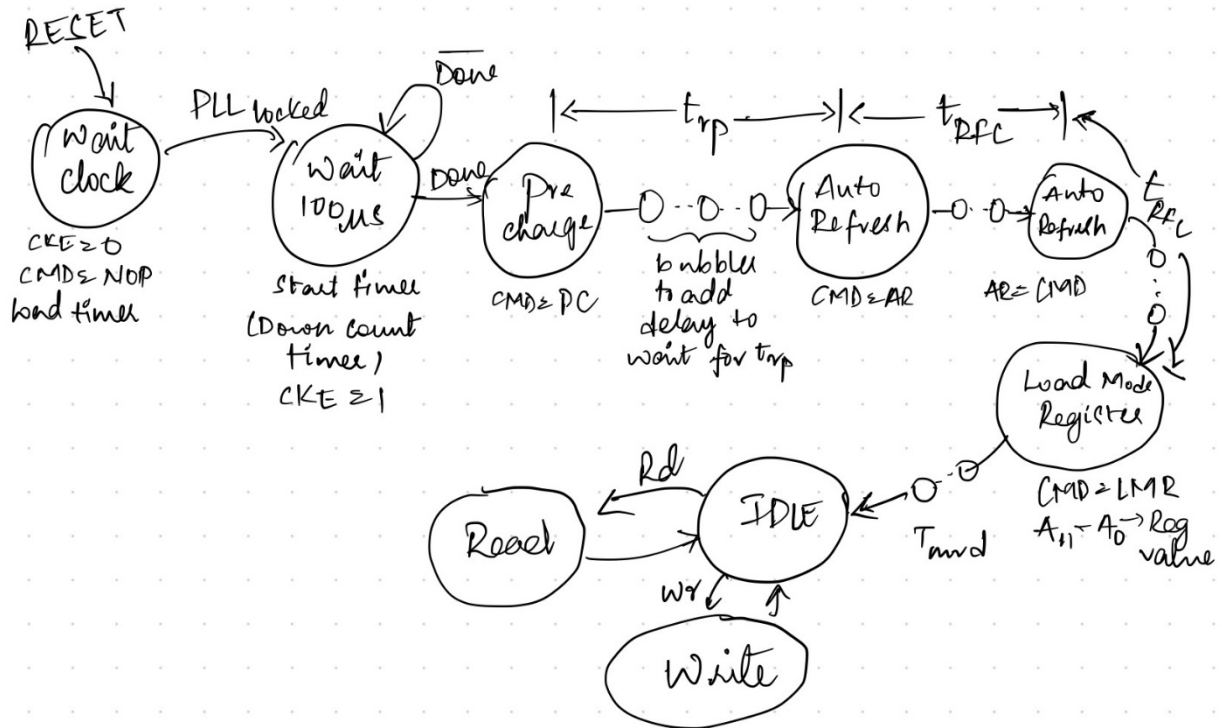 RESET
PLL locked
Wait
clock
CKE = 0
CMD = NOP
load timer
Done
Wait
100 μs
Start timer
(Down count
timer)
CKE = 1
Done
Pre
charge
CMD = PC
trp
bubbles
to add
delay to
wait for trp
Auto
Refresh
CMD = AR
tRFC
Auto
Refresh
AR = CMD
tRFC
Load Mode
Register
CMD = LMR
A11 - A0 → Reg
value
Tmrd
IDLE
Rd
Read
Wr
Write